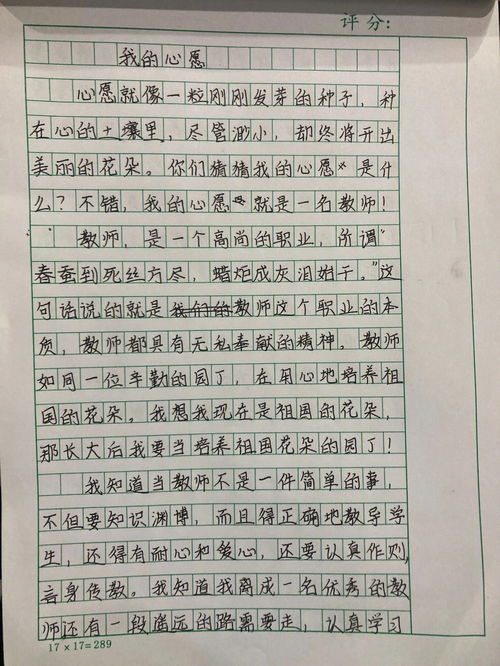 评分:
我的心愿
心愿就像一粒刚刚发芽的种子，种
在心的土壤里，尽管渺小，却终将开出
美丽的花朵。你们猜猜我的心愿是什
么？不错，我的心愿就是一名教师！
教师，是一个高尚的职业，所谓“
春蚕到死丝方尽，蜡炬成灰泪始干。”这
句话说的就是我们的教师这个职业的本
质，教师都具有无私奉献的精神。教师
如同一位辛勤的园丁，在用心地培养祖
国的花朵。我想我现在是祖国的花朵，
那长大后我要当培养祖国花朵的园丁！
我知道当教师不是一件简单的事，
不但要知识渊博，而且得正确地教导学
生，还得有耐心和爱心，还要认真作则，
言身传教。我知道我离成一名优秀的教
师还有一段遥远的路需要走，认真学习
17×17=289